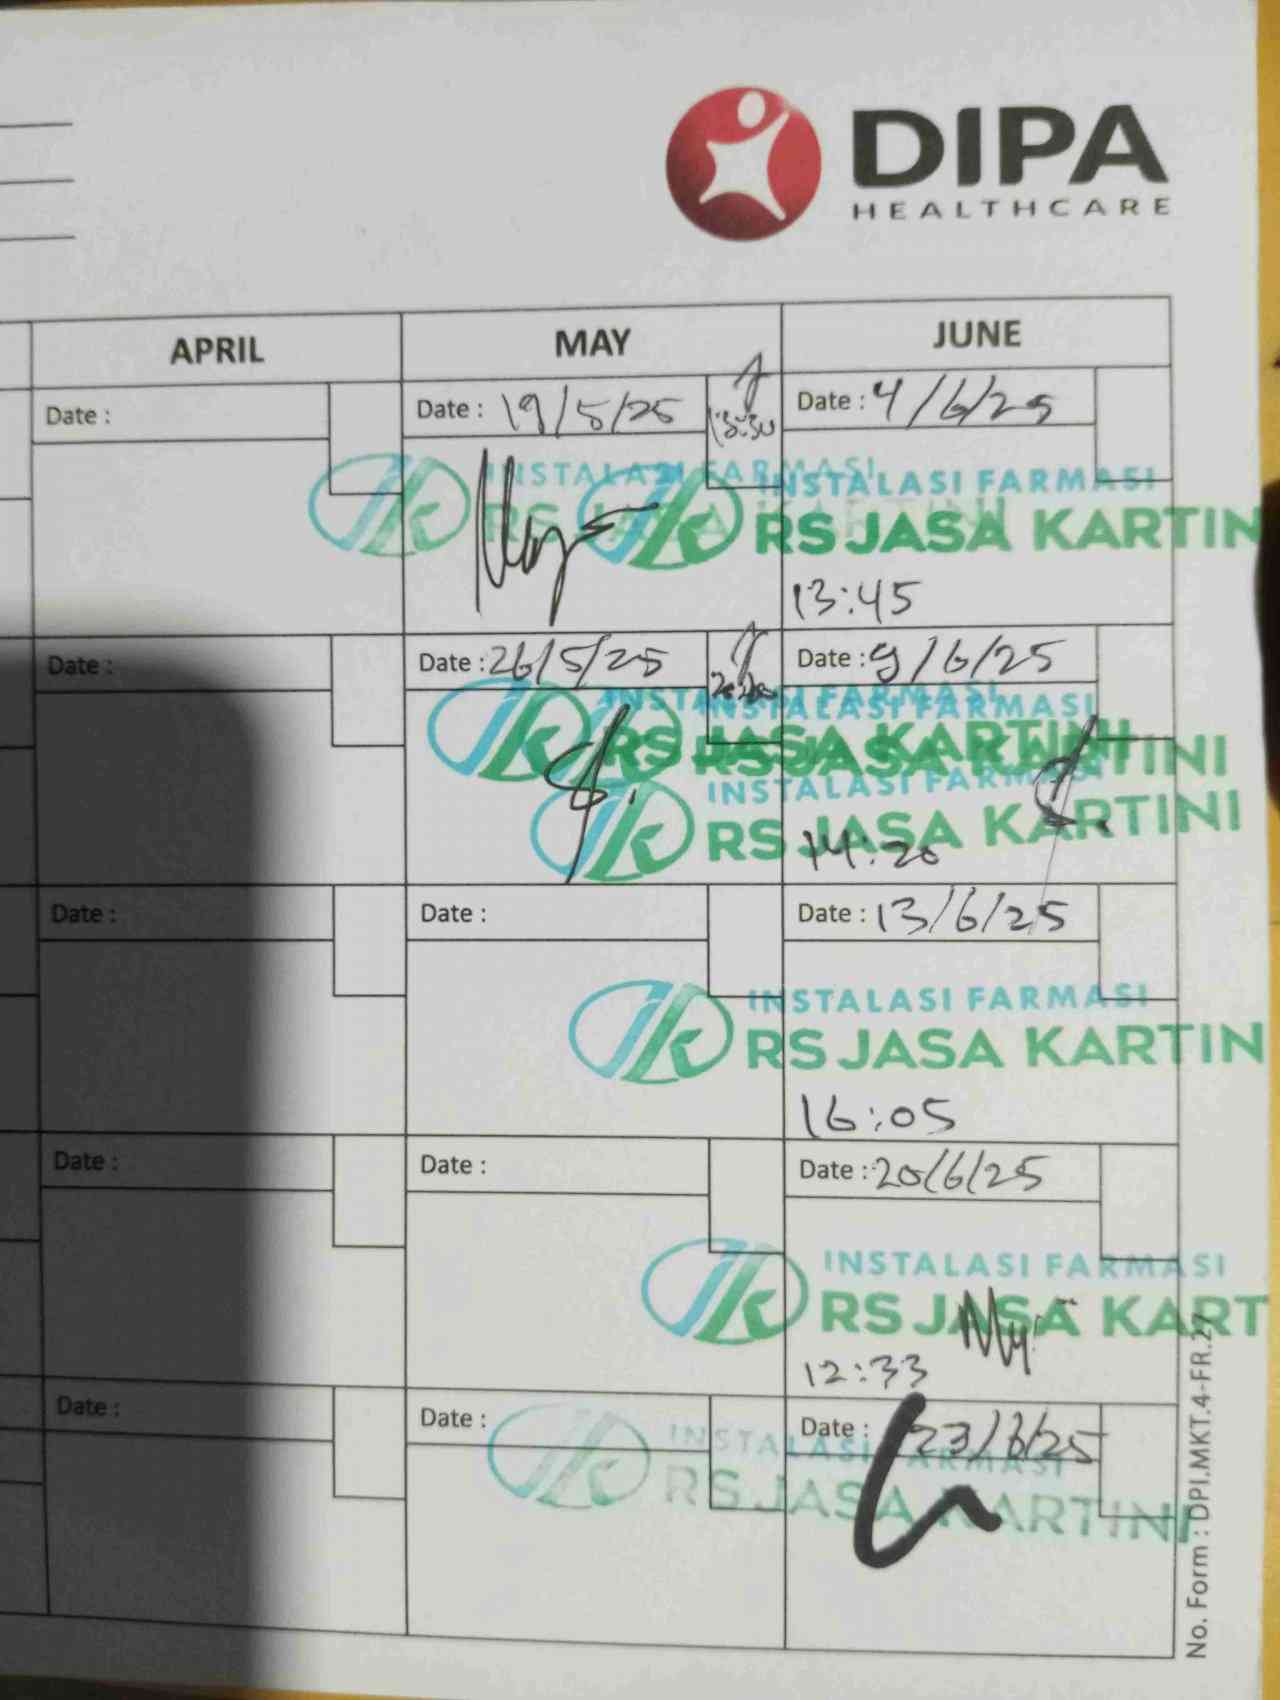 DIPA
HEALTHCARE
APRIL MAY JUNE
Date : Date : 19/5/25 13:30 Date : 4/6/25
INSTALASI FARMASI INSTALASI FARMASI
RS JASA KARTINI RS JASA KARTIN
13:45
Date : Date : 26/5/25 Date : 9/6/25
INSTALASI FARMASI
INSTALASI FARMASI
RS JASA KARTINI
RS JASA KARTINI
INSTALASI FARMASI
RS JASA KARTINI
14:20
Date : Date : Date : 13/6/25
INSTALASI FARMASI
RS JASA KARTIN
16:05
Date : Date : Date : 20/6/25
INSTALASI FARMASI
RS JASA KART
12:33
Date : Date : Date : 23/6/25
INSTALASI FARMASI
RS JASA KARTINI
No. Form : DPI.MKT.4-FR.27